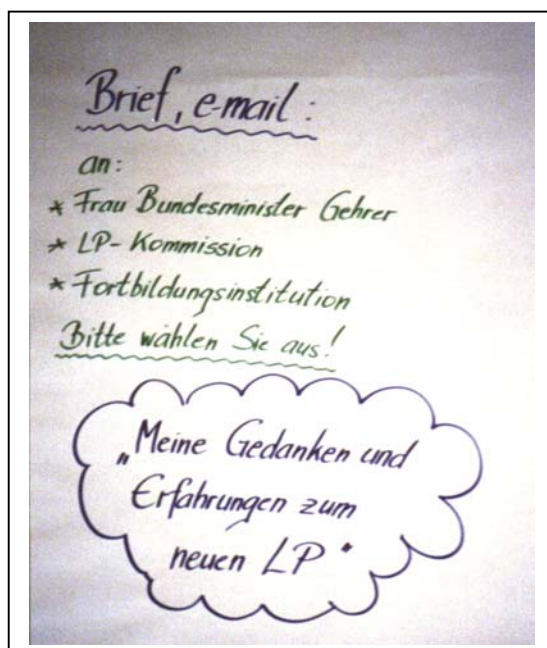 Brief, e-mail:
an:
* Frau Bundesminister Gehrer
* LP-Kommission
* Fortbildungsinstitution
Bitte wählen Sie aus!
„Meine Gedanken und
Erfahrungen zum
neuen LP"